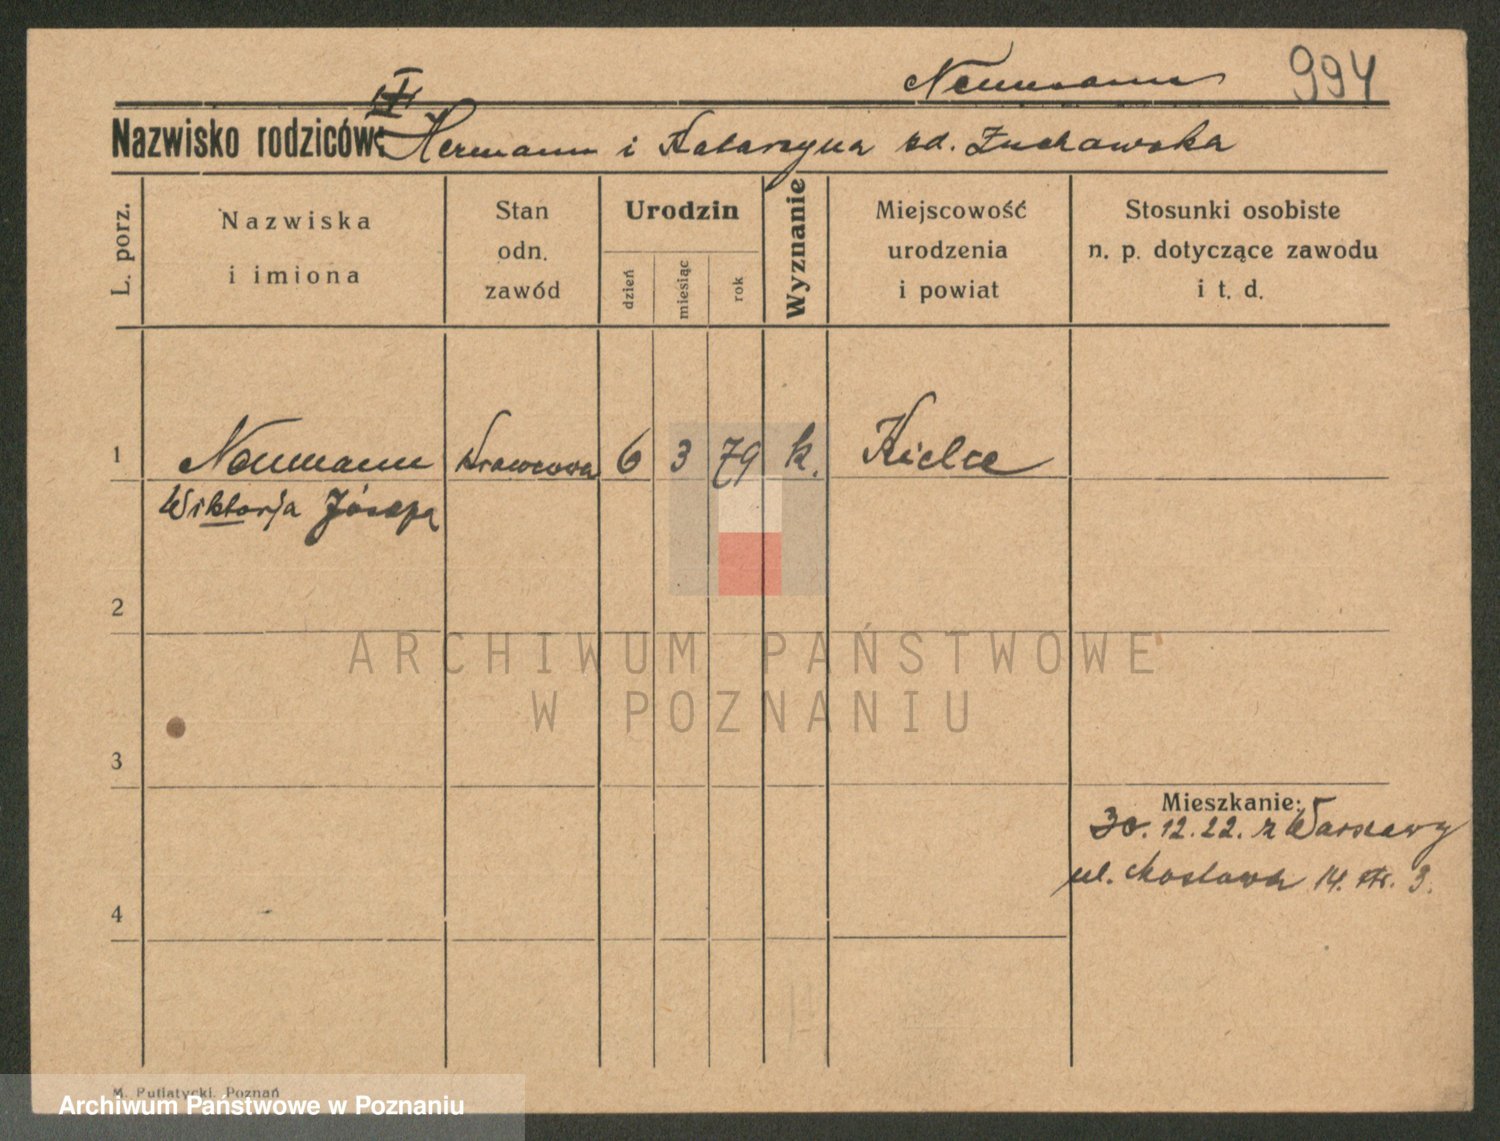 Neumann 994
III
Nazwisko rodziców: Hermann i Katarzyna zd. Żuchawska
L. porz.
Nazwiska
i imiona
Stan
odn.
zawód
Urodzin
dzień
miesiąc
rok
Wyznanie
Miejscowość
urodzenia
i powiat
Stosunki osobiste
n. p. dotyczące zawodu
i t. d.
1 Neumann Krawcowa 6 3 79 k. Kielce
Wiktorja Józefa
2
3
4
Mieszkanie:
30.12.22. z Warszawy
ul. Mostowa 14. 3.
ARCHIWUM PAŃSTWOWE
W POZNANIU
M. Putiatycki, Poznań
Archiwum Państwowe w Poznaniu